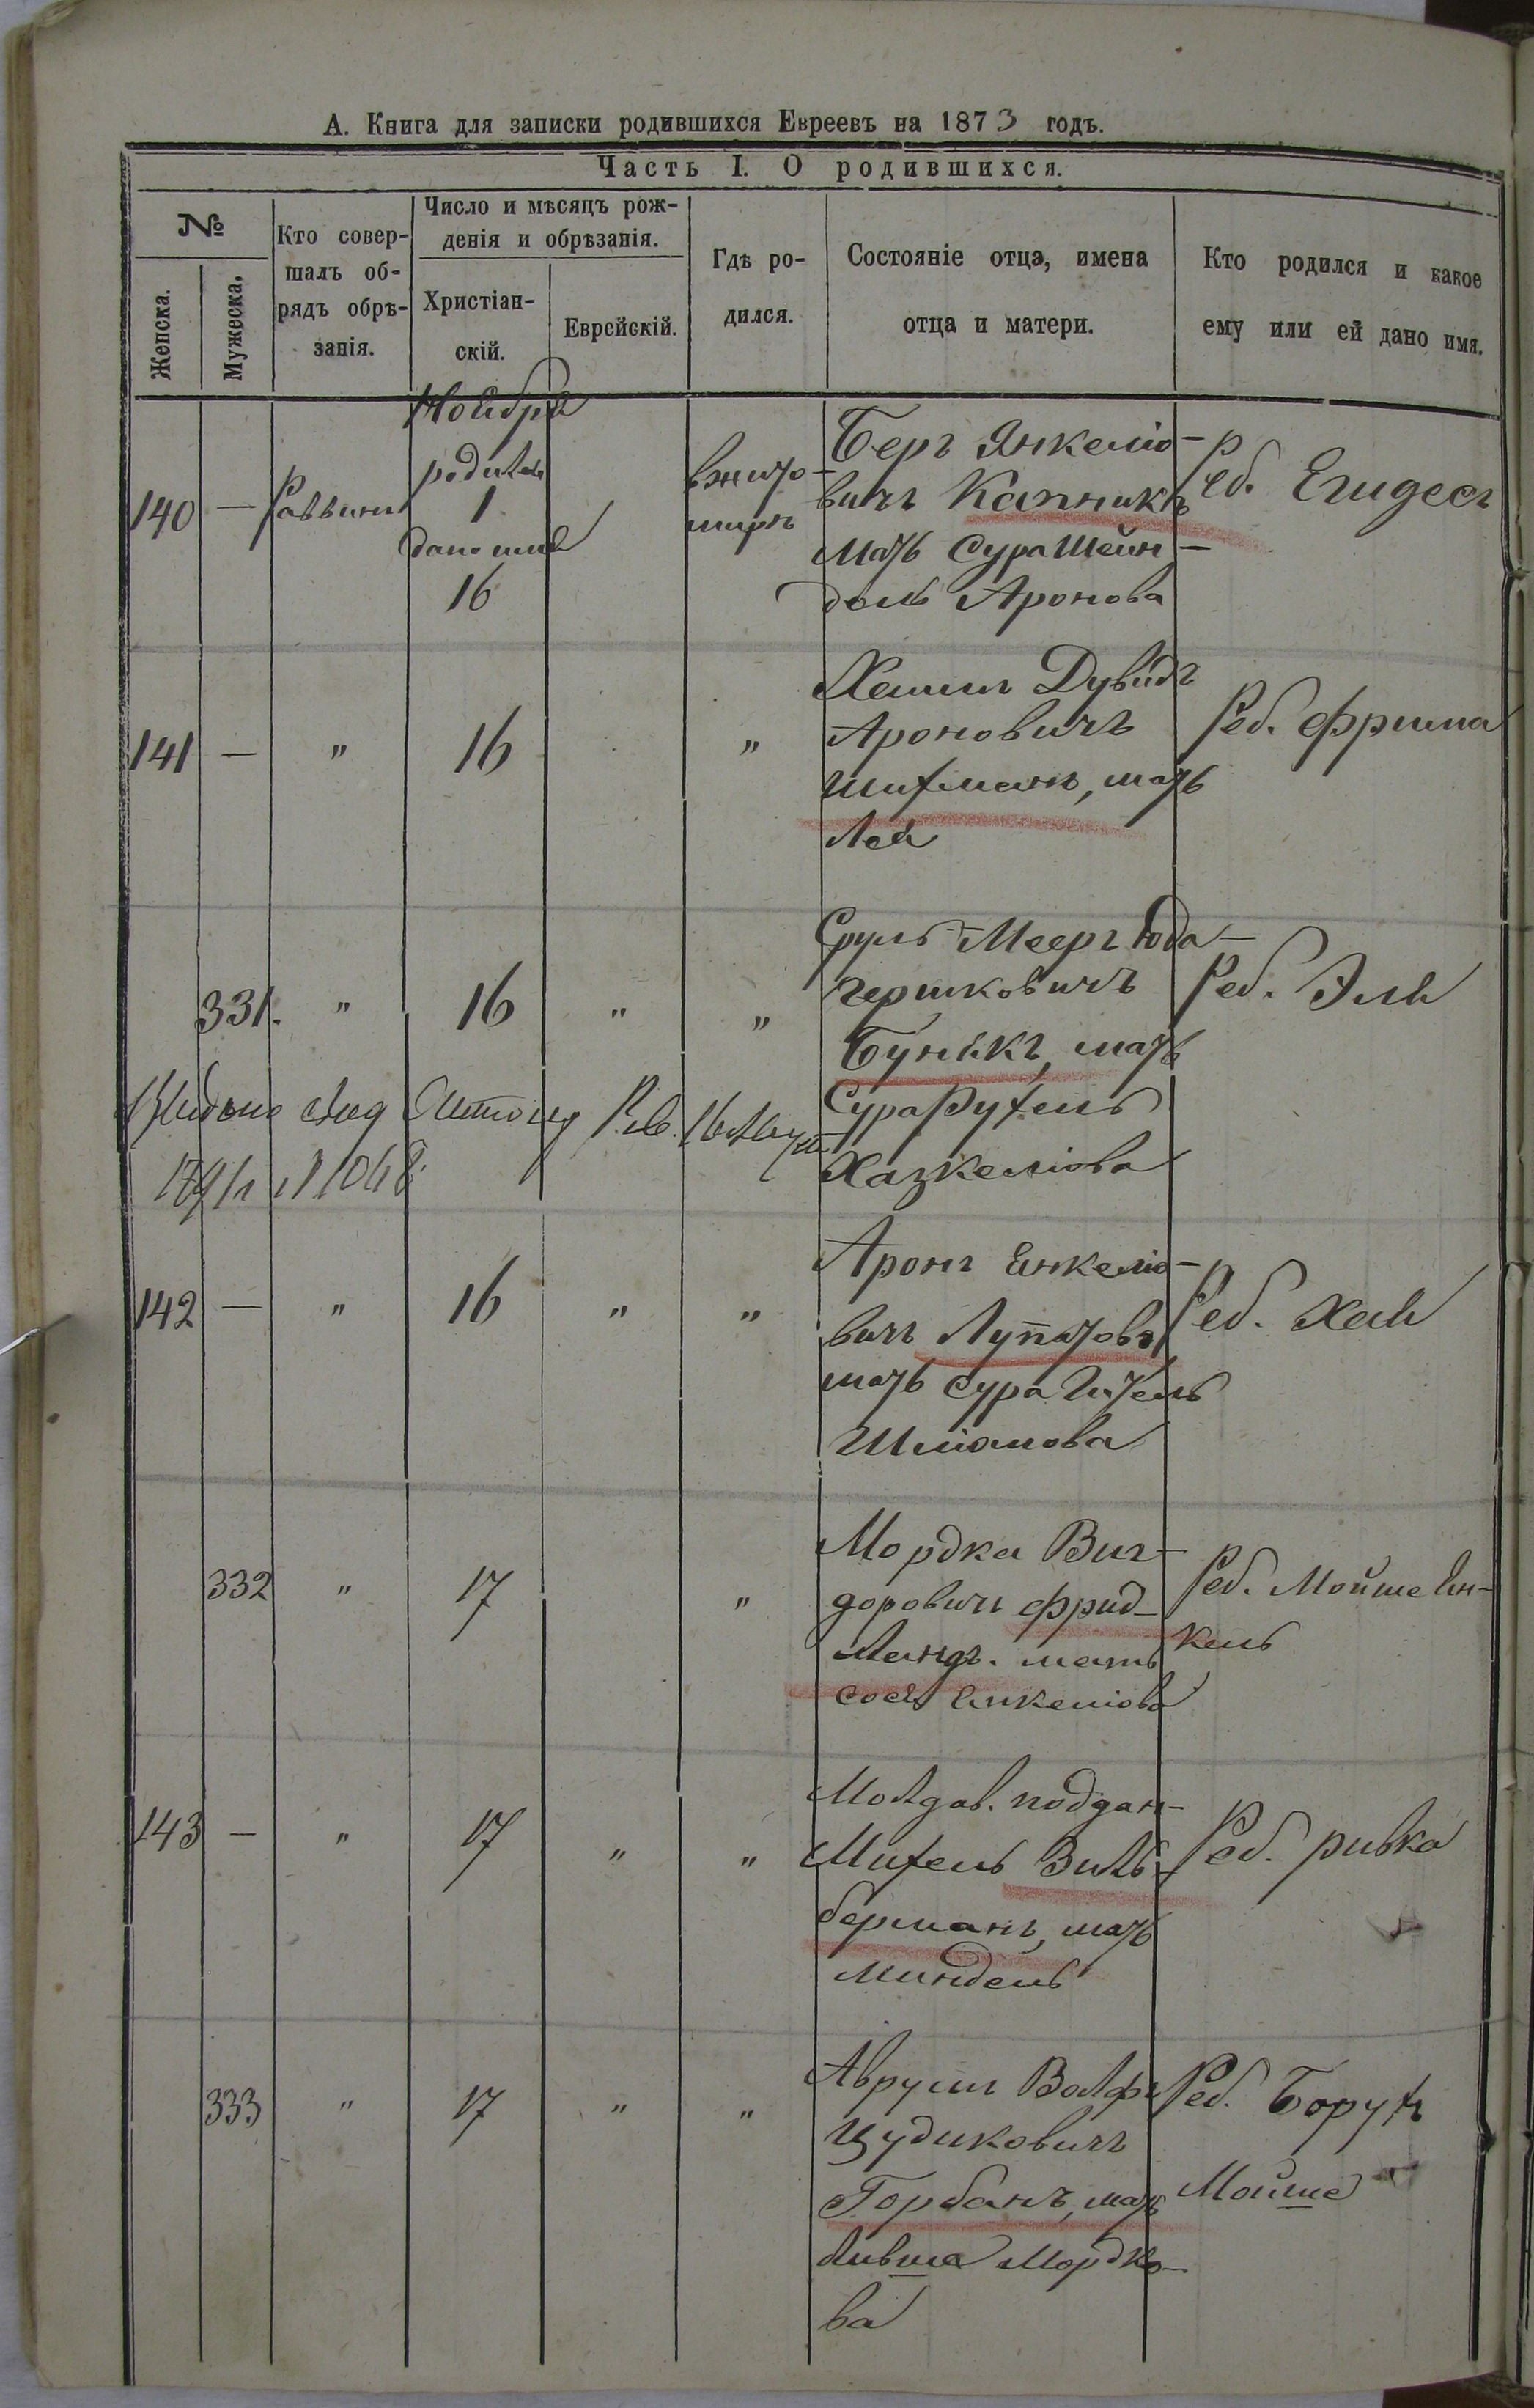 А. Книга для записки родившихся Евреевъ на 1873 годъ.
Часть I. О родившихся.
№
Женска.
Мужеска.
Кто совер-
шалъ об-
рядъ обрѣ-
занія.
Число и мѣсяцъ рож-
денія и обрѣзанія.
Христіан-
скій.
Еврейскій.
Гдѣ ро-
дился.
Состояніе отца, имена
отца и матери.
Кто родился и какое
ему или ей дано имя.
Ноября
140 — Раввинъ
родилась
1
дано имя
16
в житo-
мирѣ
Беръ Янкеліо-
вичъ Капникъ
мать Сура Шейн-
дель Аронова
Реб. Египесъ
141 — " 16 "
Хаимъ Дувидъ
Ароновичъ
Шихманъ, мать
Лея
Реб. Фрима
331. " 16 " "
Сруль Мееръ Юда-
гершковичъ
Бунякъ, мать
Сура Рухель
Хазкеліова
Реб. Эля
142 — " 16 " "
Аронъ Енкеліо-
вичъ Лупатовъ
мать Сура Гитель
Шліомова
Реб. Хая
332 " 17 "
Мордка Виг-
доровичъ Фрид-
ландъ. мать
Сося Енкеліова
Реб. Мойше Ен-
кель
143 — " 17 " "
Молдав. поддан-
Михель Зиль-
берманъ, мать
Миндель
Реб. Ривка
333 " 17 " "
Аврумъ Волфъ
Цудиковичъ
Горбанъ, мать
Ливша Мордко-
ва
Реб. Борухъ
Мойше